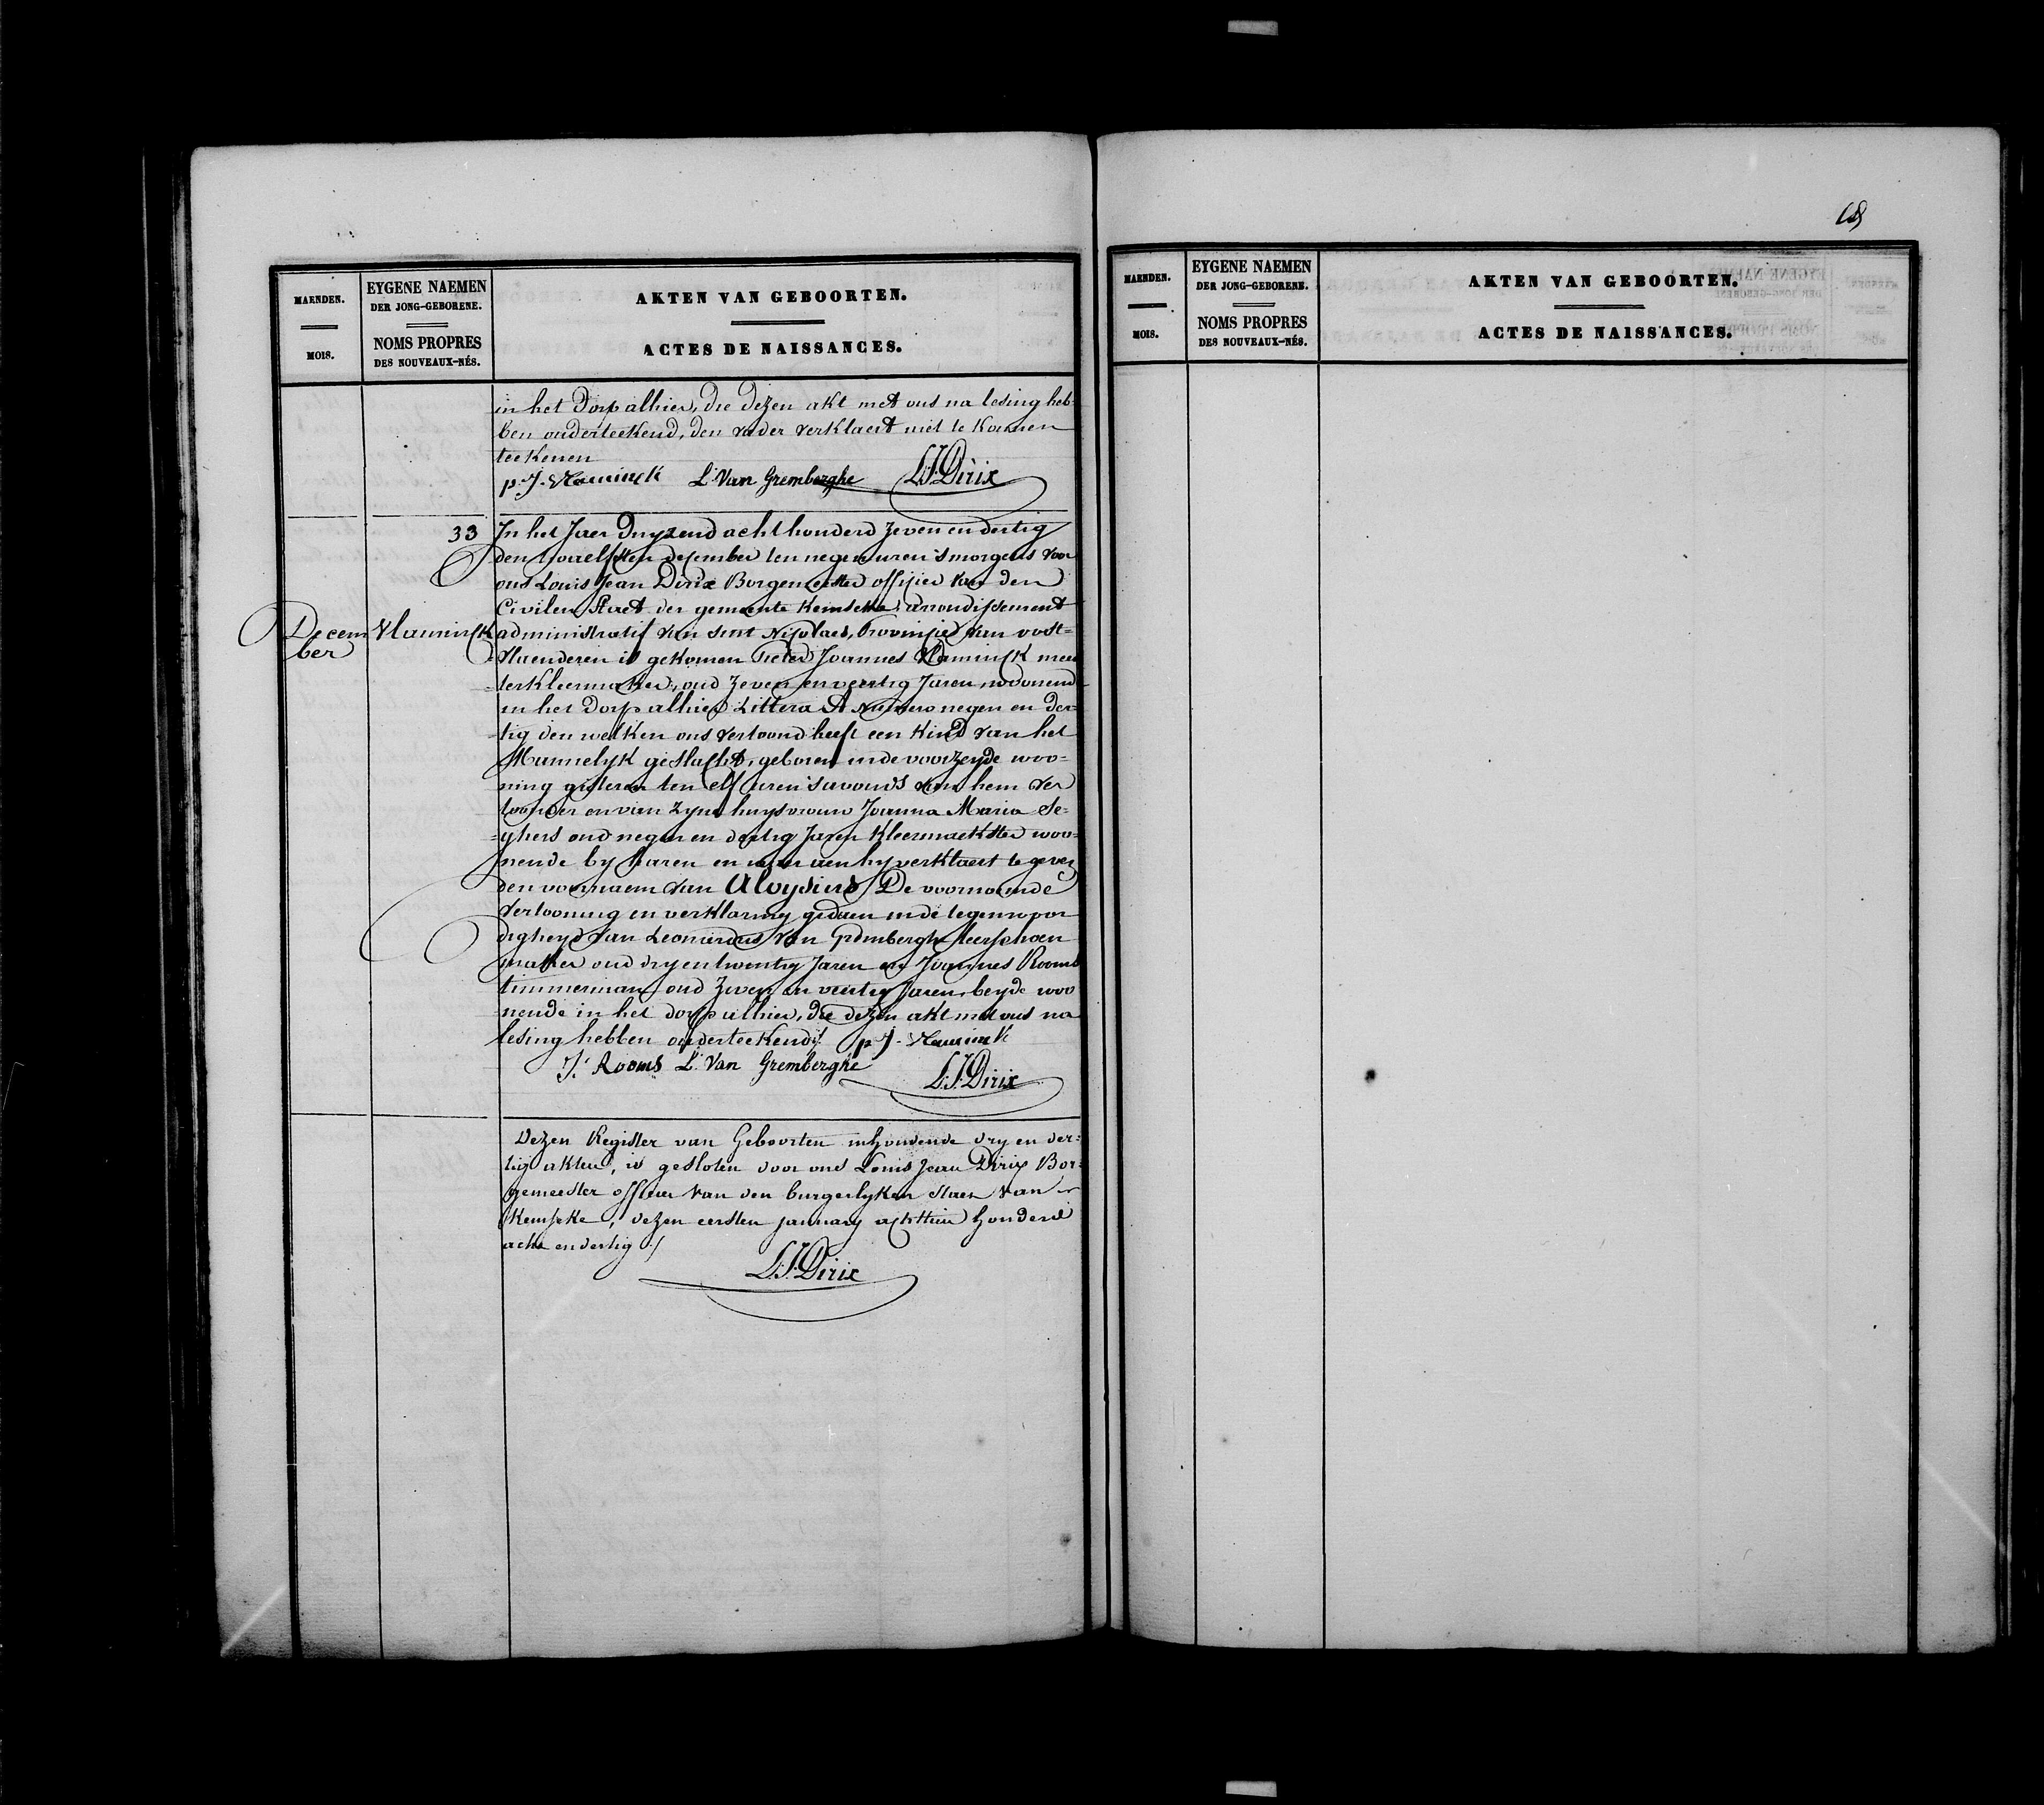 MAENDEN.
MOIS.
EYGENE NAEMEN
DER JONG-GEBORENE.
NOMS PROPRES
DES NOUVEAUX-NÉS.
AKTEN VAN GEBOORTEN.
ACTES DE NAISSANCES.
in het Dorp alhier, die dezen akt met ons na lesing heb-
ben onderteekend, den vader verklaert niet te konnen
teekenen
p. J. Vlaminck L. Van Gremberghe L.J. Dirix
33
Decem
ber
Vlaminck
In het Jaer Duyzend acht honderd zeven en dertig
den twaelfsten december ten negen uren smorgens voor
ons Louis Jean Dirix Borgemeester offisier van den
Civilen Staet der gemeente Kemseke arrondissement
administratif van sint Nikolaes, Provinsie van oost=
Vlaenderen is gekomen Pieter Joannes Vlaminck mees
=terkleermaker, oud zeven en veertig Jaren, woonend
in het Dorp alhier Littera A Numero negen en der=
tig den welken ons vertoond heeft een Kind van het
Mannelyk geslacht, geboren in de voorzeyde woo=
ning gisteren ten elf uren savonds van hem ver
tooner en van zyne huysvrouw Joanna Maria Se=
=ghers oud negen en dertig Jaren Kleermaekster woo=
nende by haren en man aen hy verklaert te geven
den voornaem van Aloysius De voornoemde
vertooning en verklaring gedaen in de tegenwoor
digheyd van Leonardus Van Gremberghe leerschoen
maker oud dry en twentig Jaren en Joannes Rooms
timmerman oud zeven en veertig Jaren, beyde woo
nende in het dorp alhier, die dezen akt met ons na
lesing hebben onderteekend./. p J. Vlaminck
J. Rooms L. Van Gremberghe
L.J. Dirix
Dezen Register van Geboorten inhoudende dry en der=
tig akten, is gesloten door ons Louis Jean Dirix Bor=
gemeester officier van den burgerlyken staet van
Kemseke, dezen eersten january achttien honderd
acht en dertig ./
L.J. Dirix
MAENDEN.
MOIS.
EYGENE NAEMEN
DER JONG-GEBORENE.
NOMS PROPRES
DES NOUVEAUX-NÉS.
AKTEN VAN GEBOORTEN.
ACTES DE NAISSANCES.